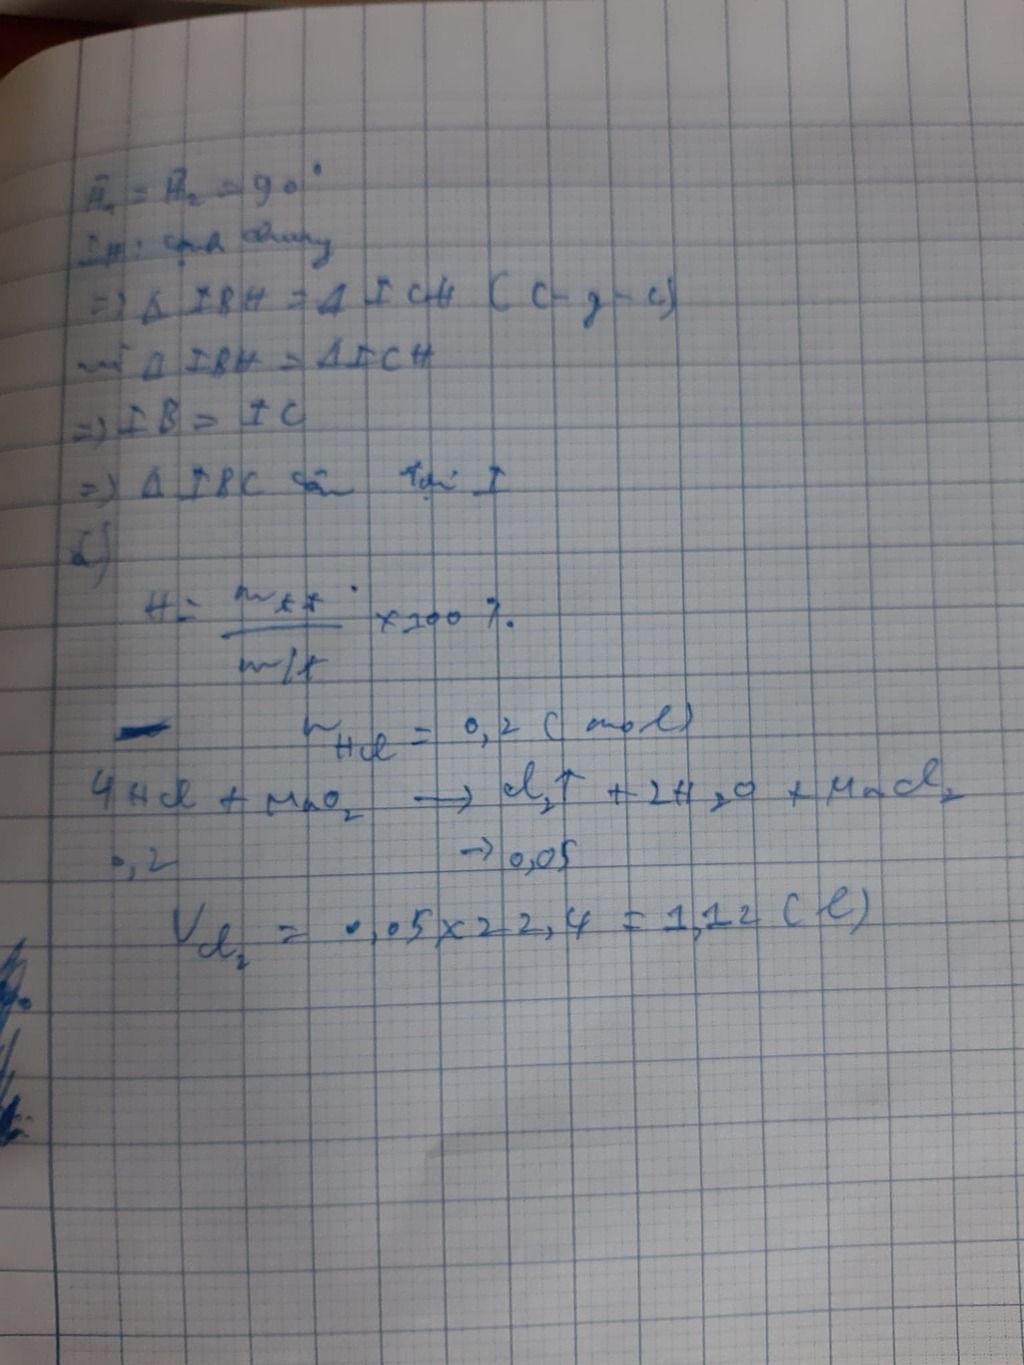 Ĥ₁ = Ĥ₂ = 90°
IH: cạnh chung
=> Δ IBH = Δ ICH (c-g-c)
Δ IBH = Δ ICH
=> IB = IC
=> Δ IBC cân tại I
c)
H = mtt / mlt × 100 %.
nHCl = 0,2 (mol)
4HCl + MnO₂ → Cl₂↑ + 2H₂O + MnCl₂
0,2 → 0,05
VCl₂ = 0,05 × 22,4 = 1,12 (l)